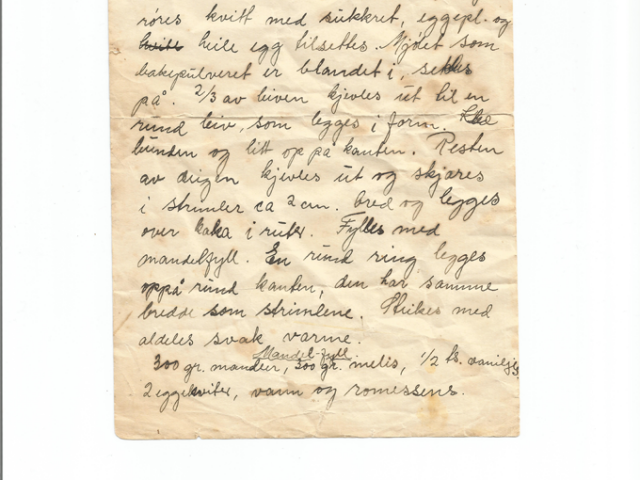 røres kvitt med sukkret, eggepl. og
hvitt heile egg tilsettes. Mjølet som
bakepulveret er blandet i, settes
på. 2/3 av leiven kjevles ut til en
rund leiv, som legges i form.
bunden og litt op på kanten. Resten
av deigen kjevles ut og skjæres
i strimler ca 2 cm. bred og legges
over kaka i ruter. Fylles med
mandelfyll. En rund ring legges
oppå rund kanten, den har samme
bredde som strimlene. Stikes med
aldeles svak varme.
Mandel-fyll:
300 gr. mandler, 300 gr. melis, 1/2 ts. vaniljes
2 eggekviter, vann og romessens.